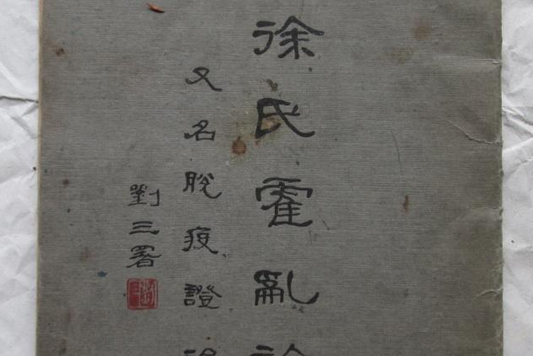 徐氏霍亂論
又名脫疫證
劉三署